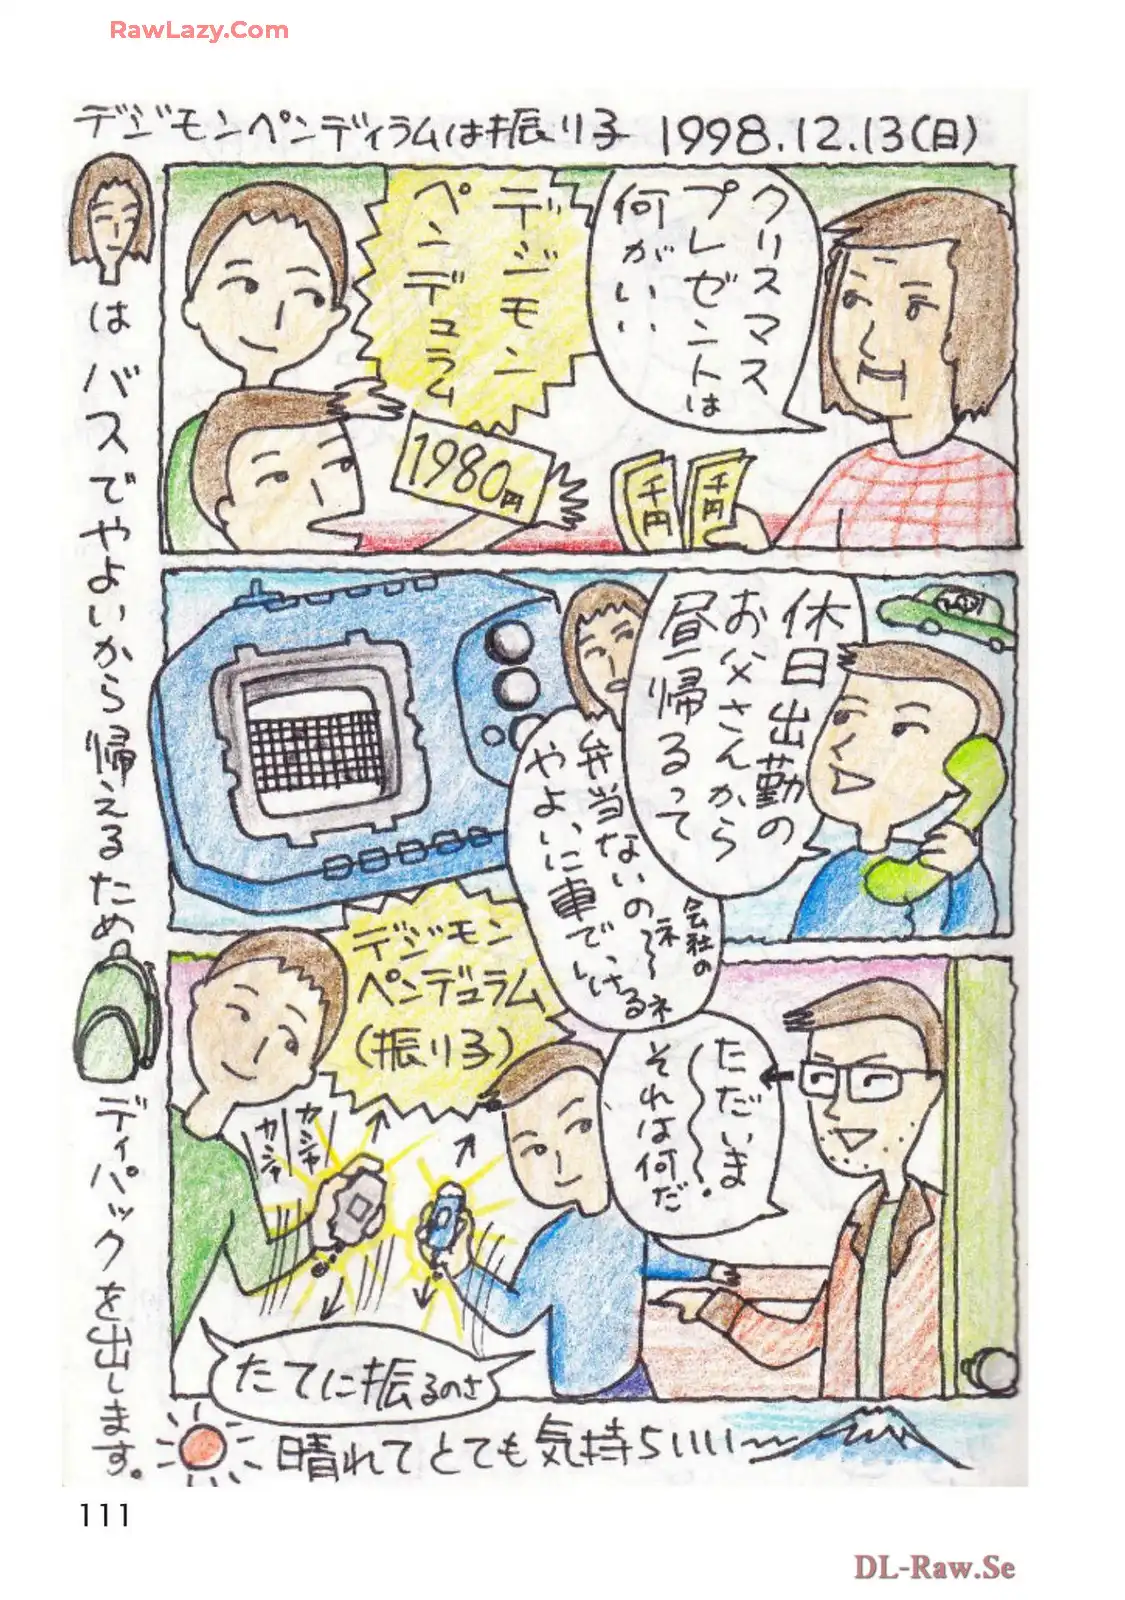 RawLazy.Com
デジモンペンディラムは振り子 1998.12.13(日)
クリスマス
プレゼントは
何がいい
デジモン
ペンデュラム
1980円
千円
千円
休日出勤の
お父さんから
昼帰るって
弁当ないのネ〜〜ネ
会社の
やよいに車でいける
ただいま〜〜。
それは何だ
デジモン
ペンデュラム
(振り子)
カシャ
カシャ
たてに振るのさ
はバスでやよいから帰えるため
ディパックを出します。
晴れてとても気持ちいい〜
111
DL-Raw.Se